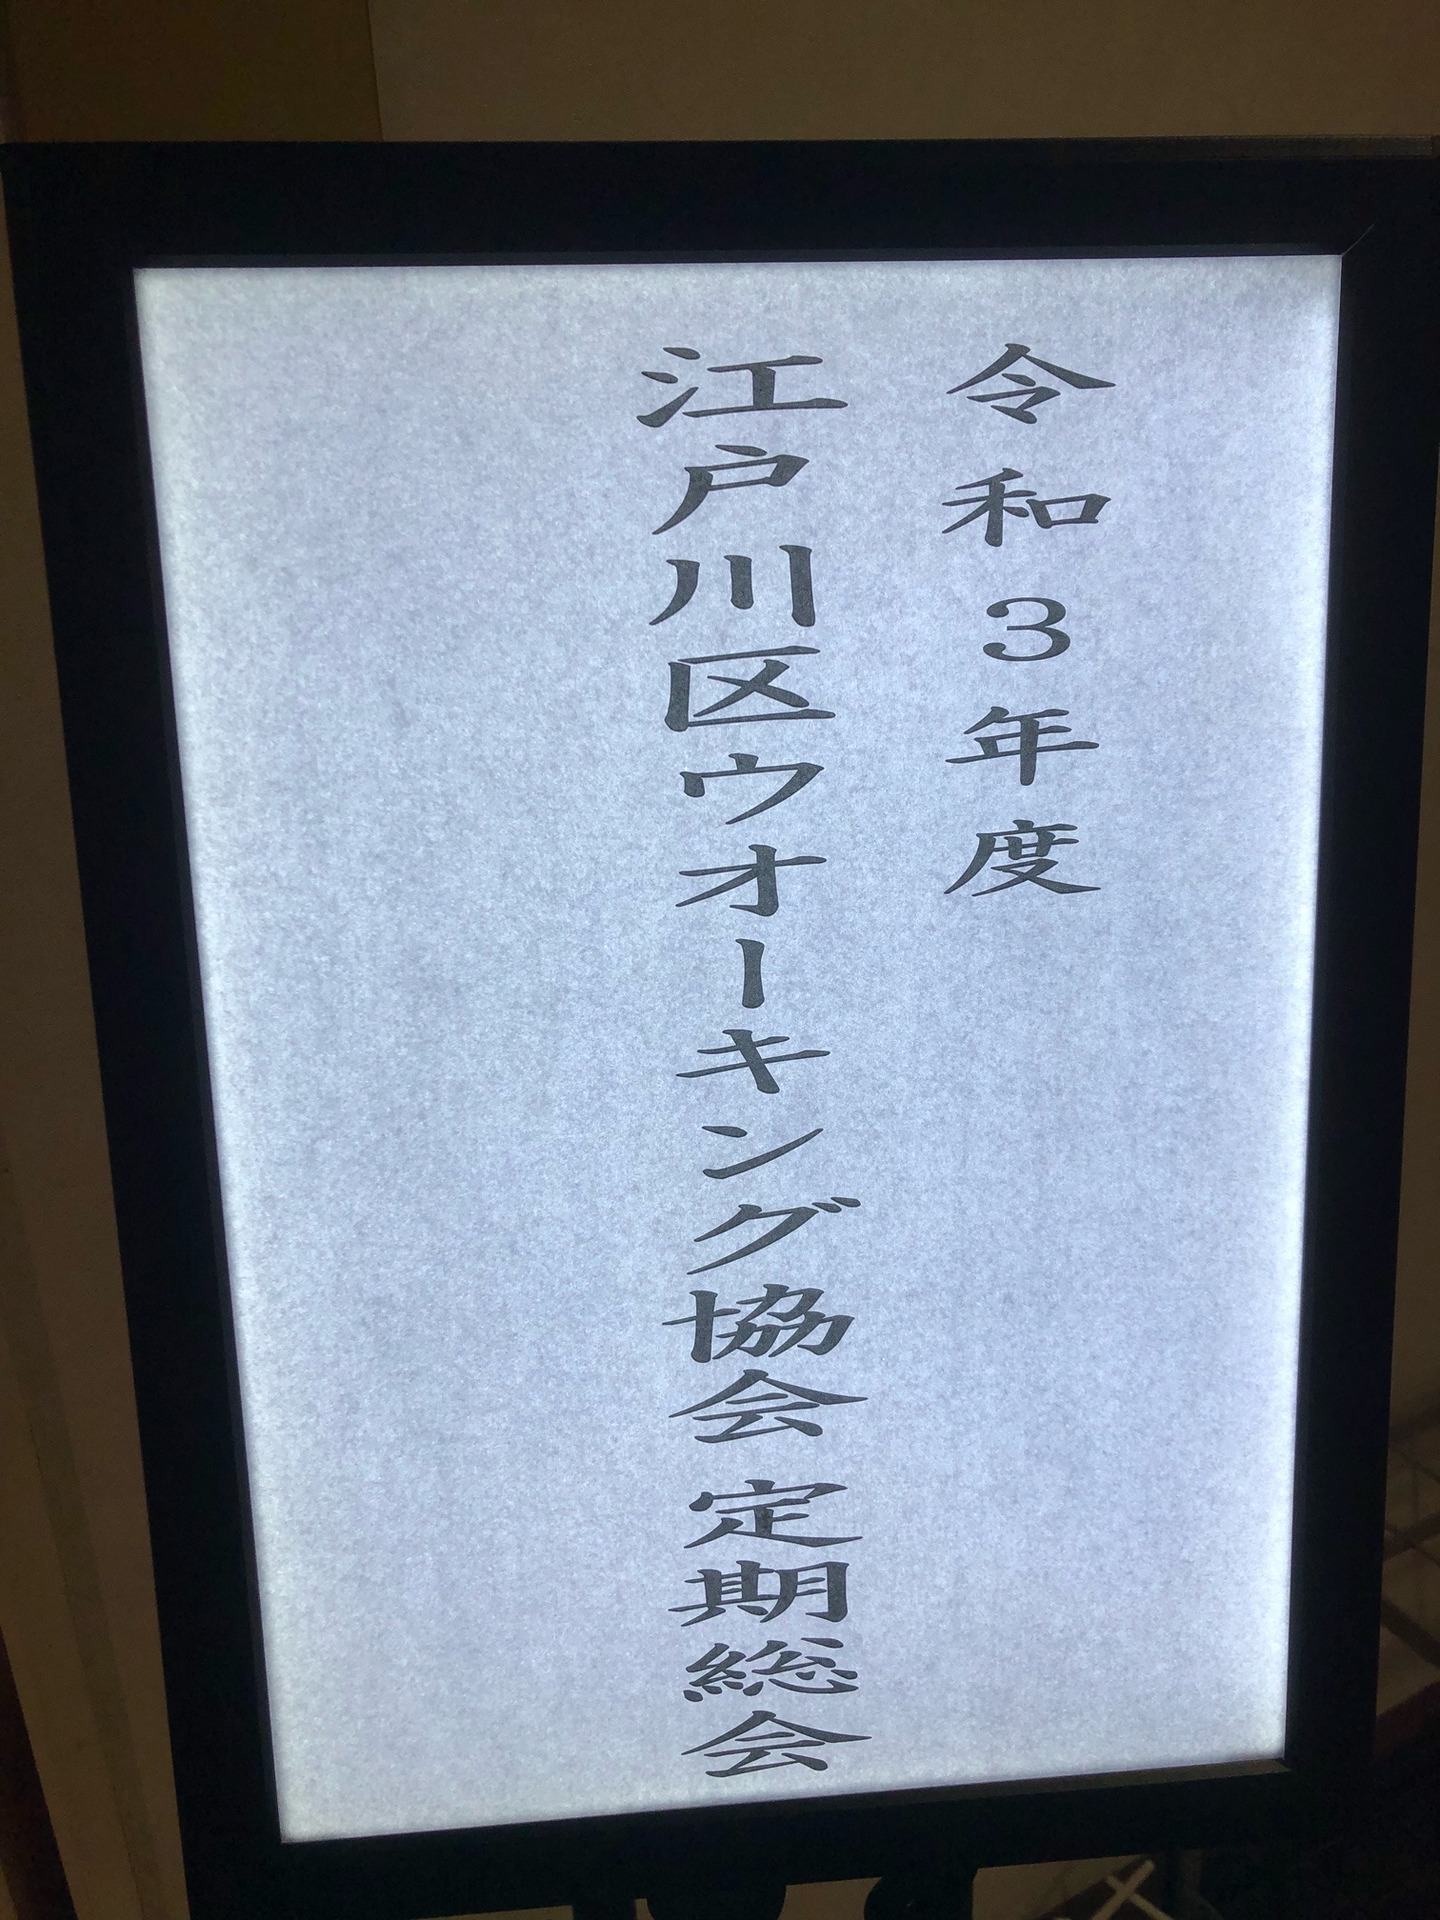 令和3年度
江戸川区ウオーキング協会 定期総会